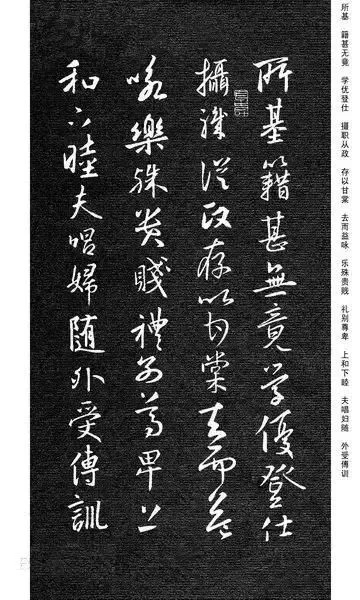 所基 籍甚无竟 学优登仕 摄职从政 存以甘棠 去而益咏 乐殊贵贱 礼别尊卑 上和下睦 夫唱妇随 外受傅训
所基籍甚無竟学優登仕
攝職從政存以甘棠去而益
咏樂殊貴賤禮别尊卑上
和下睦夫唱婦随外受傅訓